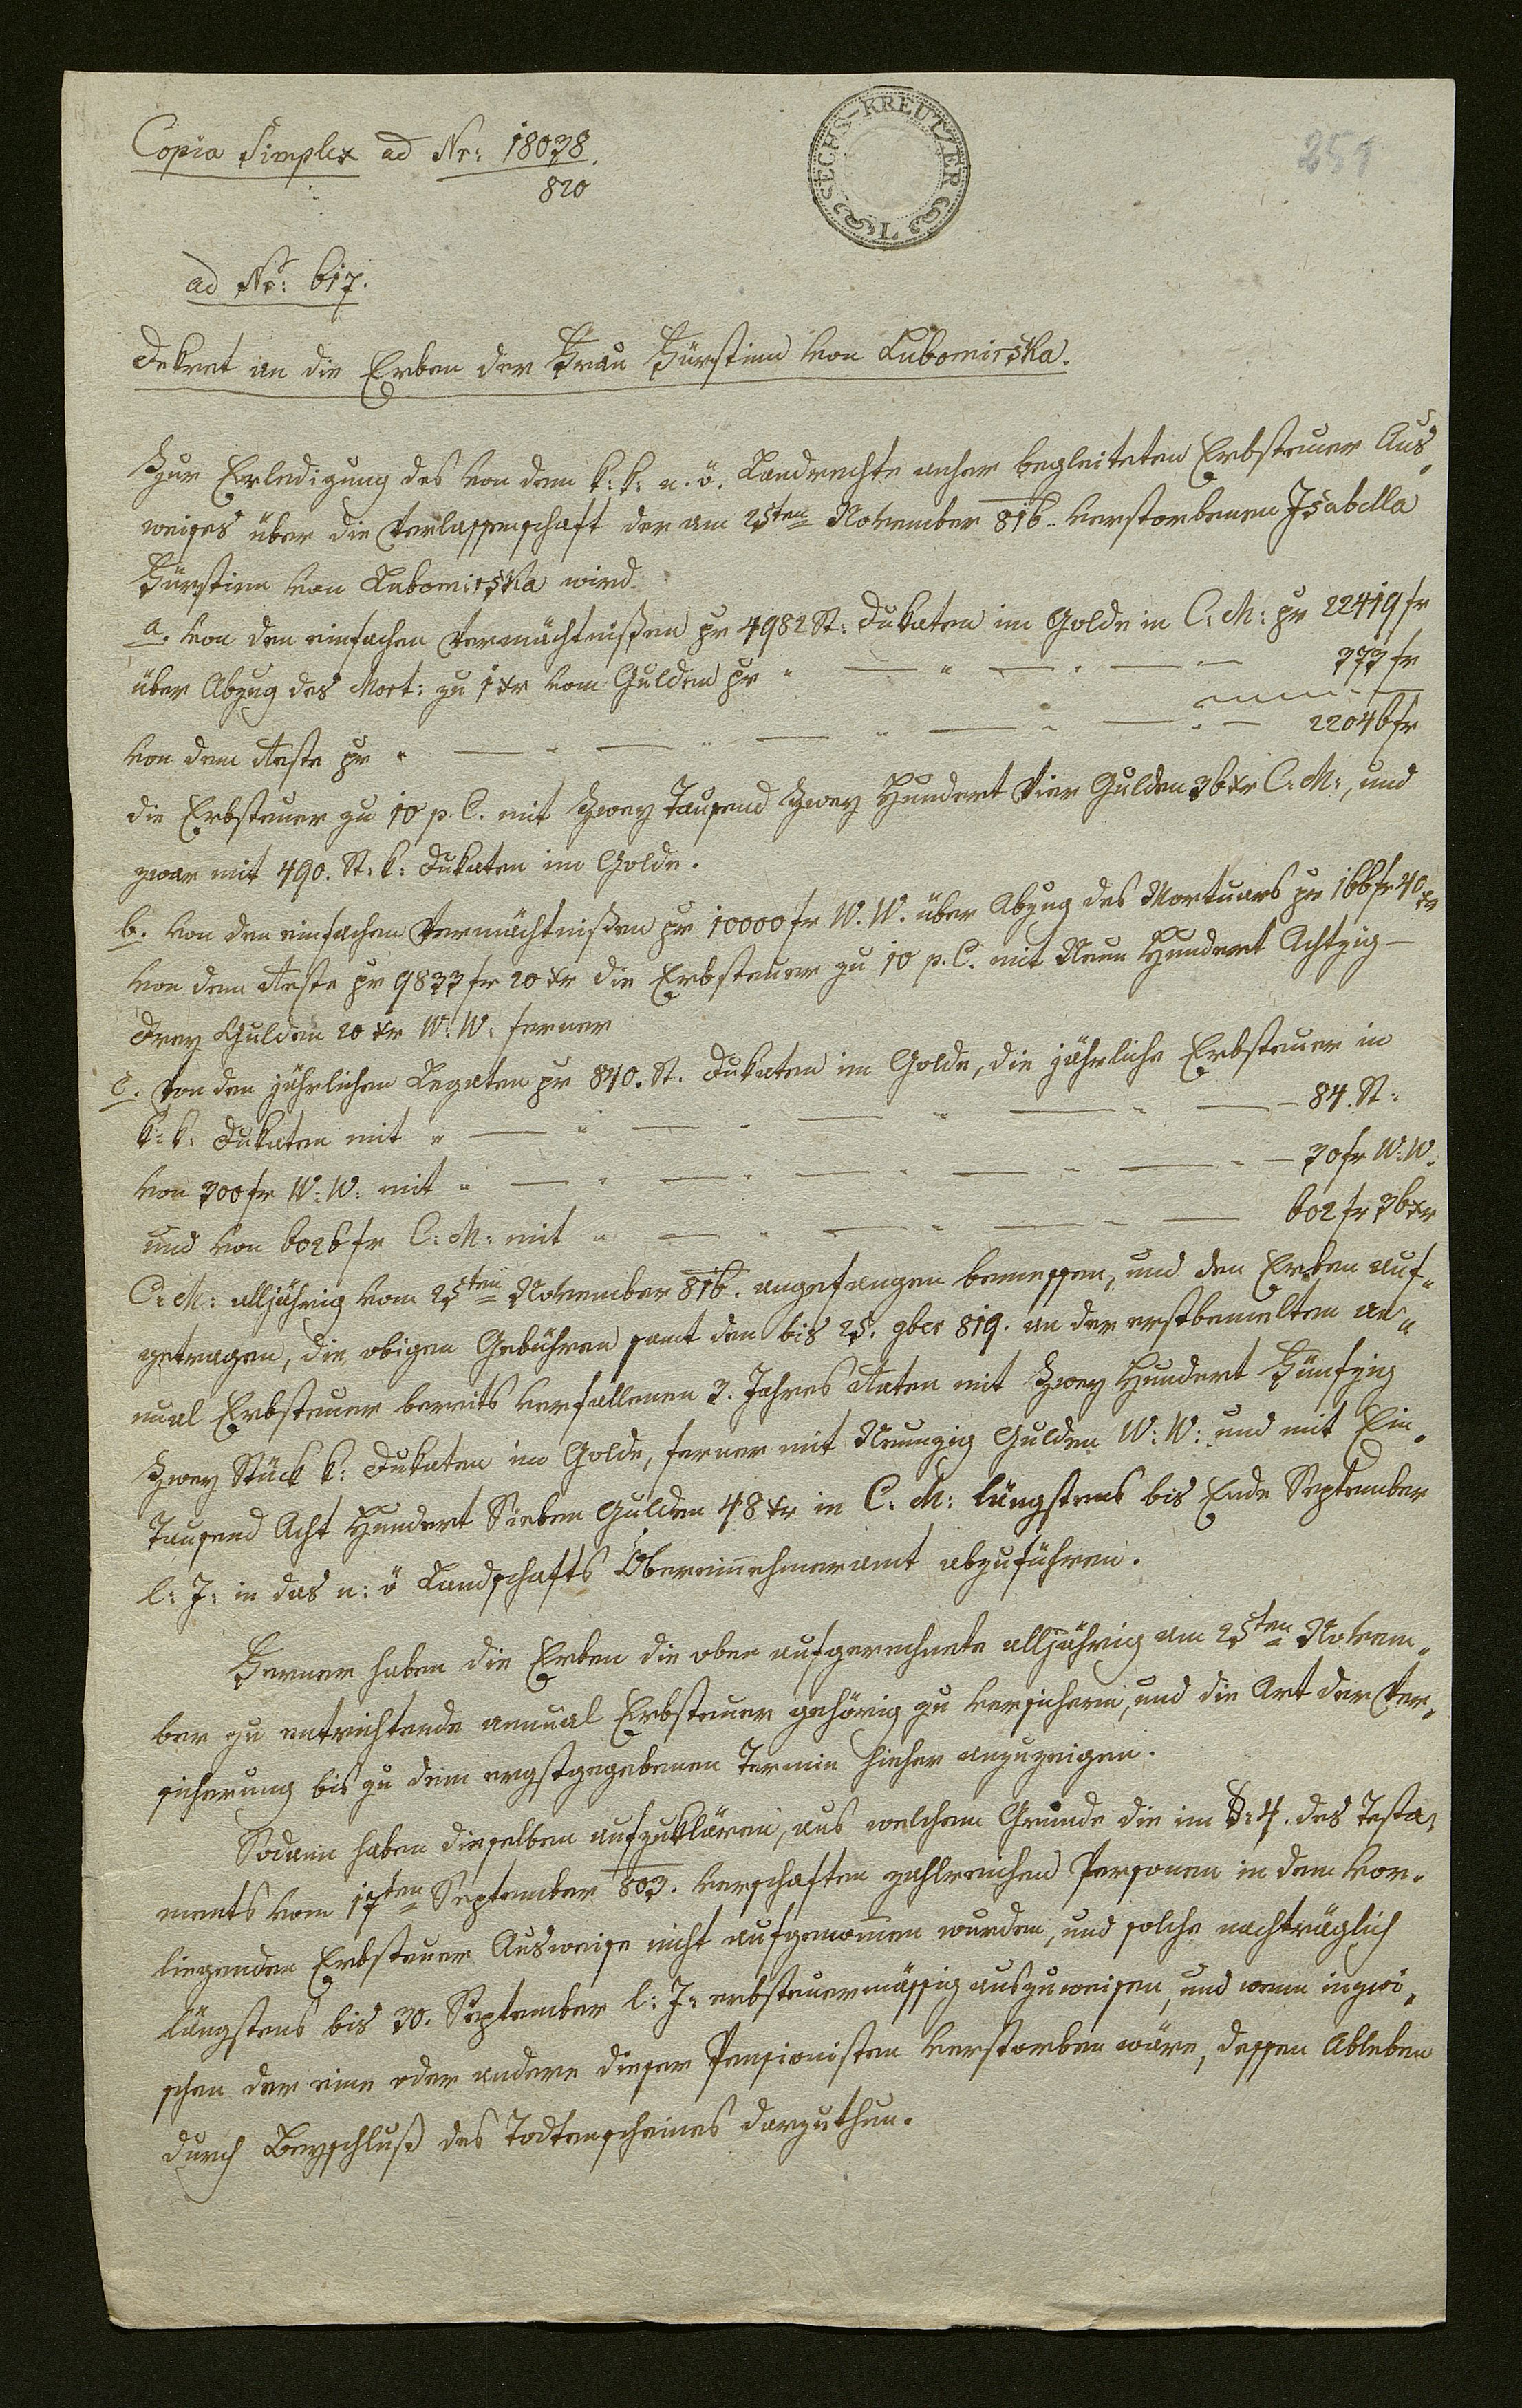 Copia Simplex ad Nr: 18038.
820
SECHS-KREUTZER
251
ad Nr: 617.
Dekret an die Erben der Frau Fürstinn von Lubomirska.
Zur Erledigung des von dem k: k: n. ö. Landrechte anher begleiteten Erbsteuer Aus„
weises über die Verlassenschaft der am 25ten November 816. verstorbenen Isabella
Fürstinn von Lubomirska wird
a. von den einfachen Vermächtnißen pr 4982 St: Dukaten im Golde in C: M: pr 22419 fr
über Abzug des Mort: zu 1 xr vom Gulden pr „ — „ — „ — „ — 373 fr
von dem Reste pr „ — „ — „ — „ — „ — „ — 22046 fr
die Erbsteuer zu 10 p. C. mit Zwey Tausend Zwey Hundert Vier Gulden 36 xr C: M:, und
zwar mit 490. St: k: Dukaten im Golde.
b. von den einfachen Vermächtnißen pr 10000 fr W. W. über Abzug des Mortuars pr 166 fr 40 xr
von dem Reste pr 9833 fr 20 xr die Erbsteuer zu 10 p. C. mit Neun Hundert Achtzig —
Drey Gulden 20 xr W: W: ferner
c. Von den jährlichen Legaten pr 840. St. Dukaten im Golde, die jährliche Erbsteuer in
k: k: Dukaten mit „ — „ — „ — „ — „ — 84. St:
von 300 fr W: W: mit „ — „ — „ — „ — „ — 30 fr W: W.
und von 6026 fr C: M: mit „ — „ — „ — „ — 602 fr 36 xr
C: M: alljährig vom 25ten November 816. angefangen bemessen, und den Erben auf„
getragen, die obigen Gebühren samt den bis 25. 9ber 819. an der erstbemelten an„
nual Erbsteuer bereits verfallenen 3. Jahres Raten mit Zwey Hundert Fünfzig
Zwey Stück k: Dukaten im Golde, ferner mit Neunzig Gulden W: W: und mit Ein„
Tausend Acht Hundert Sieben Gulden 48 xr in C: M: längstens bis Ende September
l: J: in das n: ö Landschafts Obereinnehmeramt abzuführen.
Ferner haben die Erben die oben aufgerechnete alljährig am 25ten Novem„
ber zu entrichtende annual Erbsteuer gehörig zu versichern, und die Art der Ver„
sicherung bis zu dem erstgegebenen Termin hieher anzuzeigen.
Sodann haben dieselben aufzuklären, aus welchem Grunde die im §: 4. des Testa„
ments vom 17ten September 803. zahlreichen Personen in dem vor„
liegenden Erbsteuer Ausweise nicht aufgenommen wurden, und solche nachträglich
längstens bis 30. September l: J: erbsteuermässig auszuweisen, und wenn inzwi„
schen der eine oder andere dieser Pensionisten verstorben wäre, dessen Ableben
durch Beyschluß des Todtenscheines darzuthun.